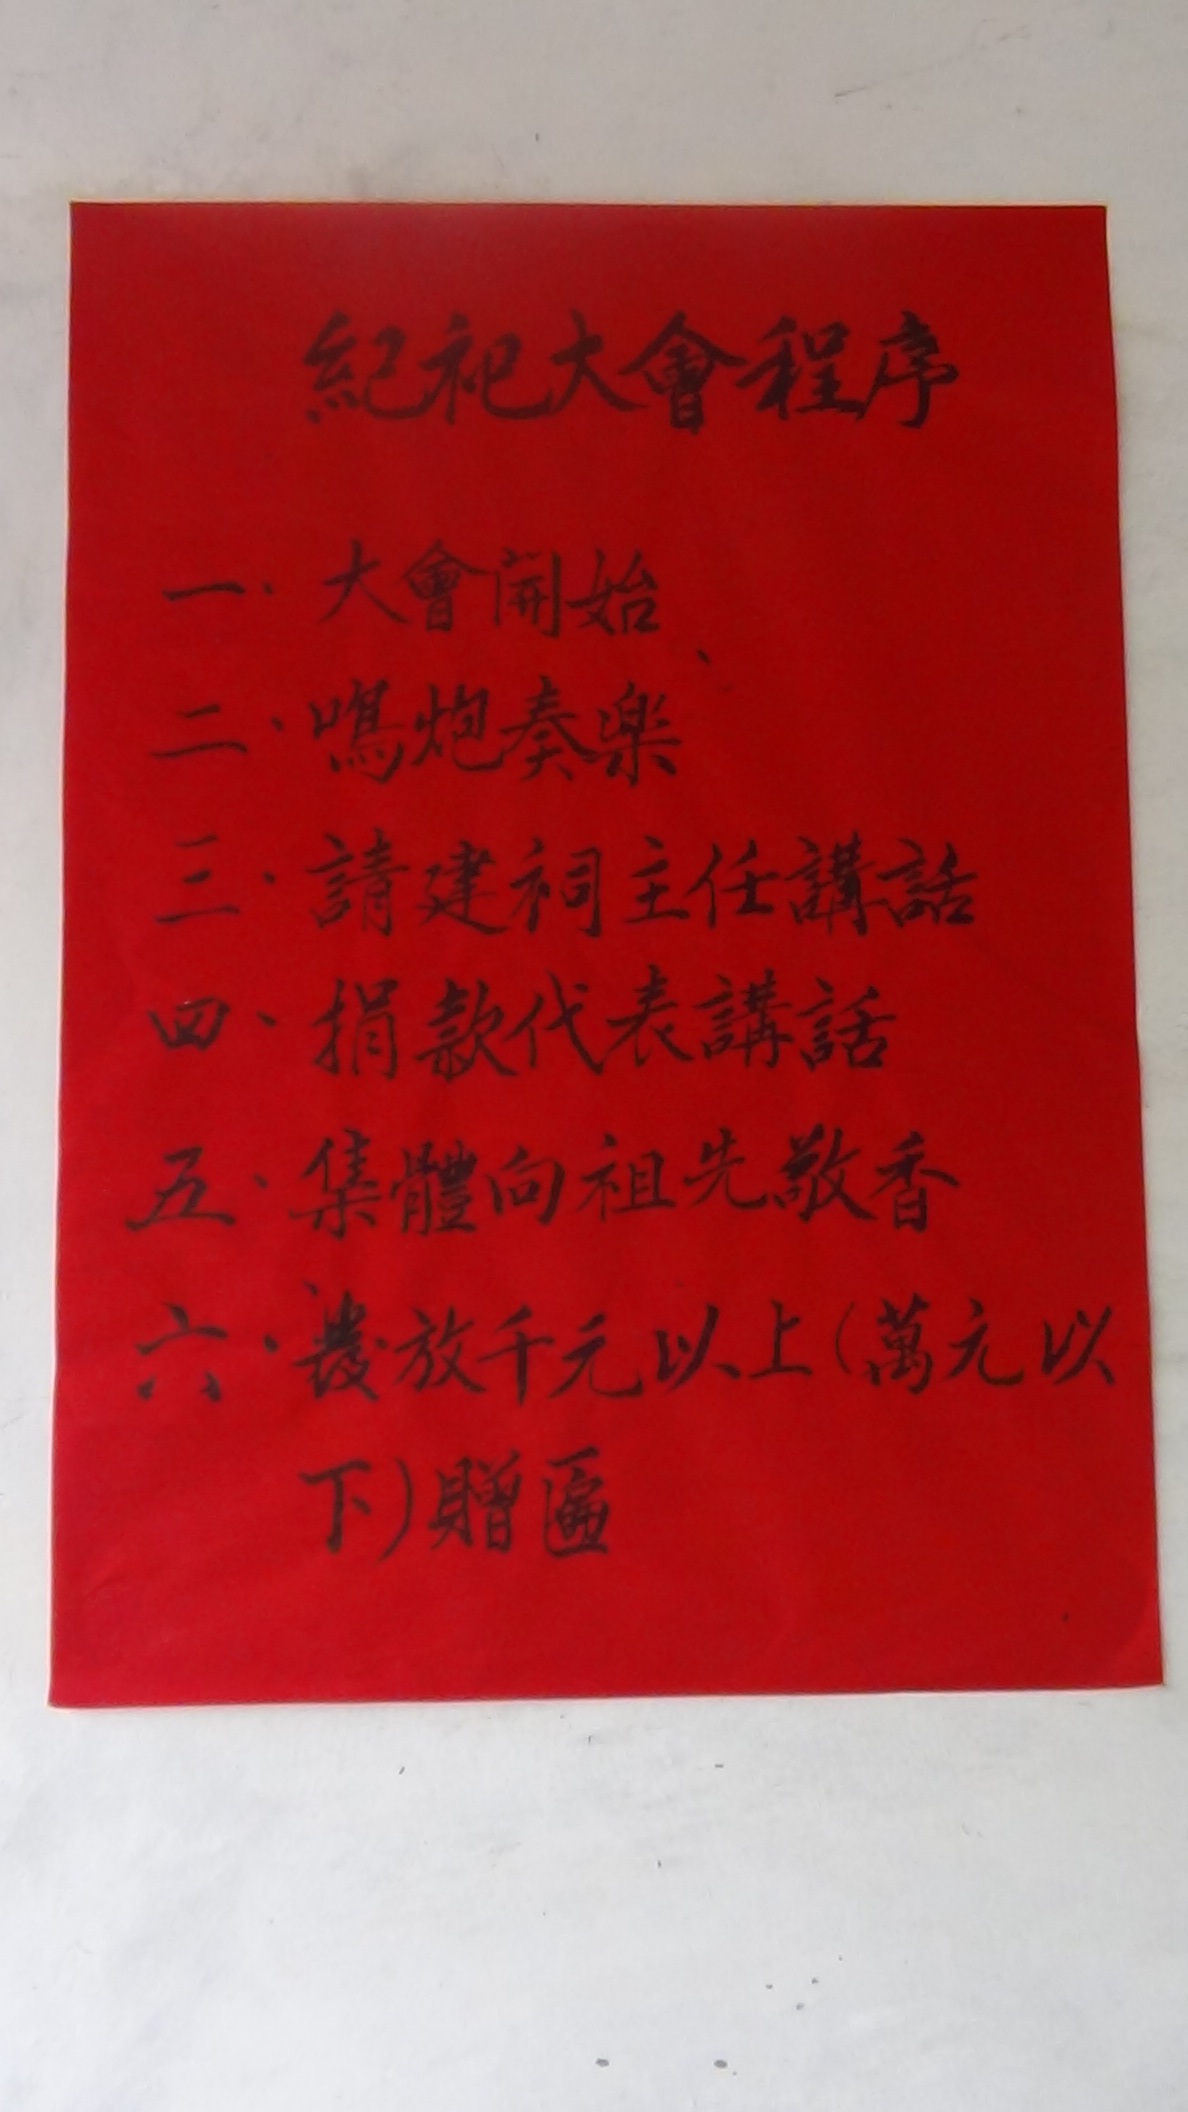 紀祀大會程序
一、大會開始
二、鳴炮奏樂
三、請建祠主任講話
四、捐款代表講話
五、集體向祖先敬香
六、發放千元以上(萬元以
下)贈匾